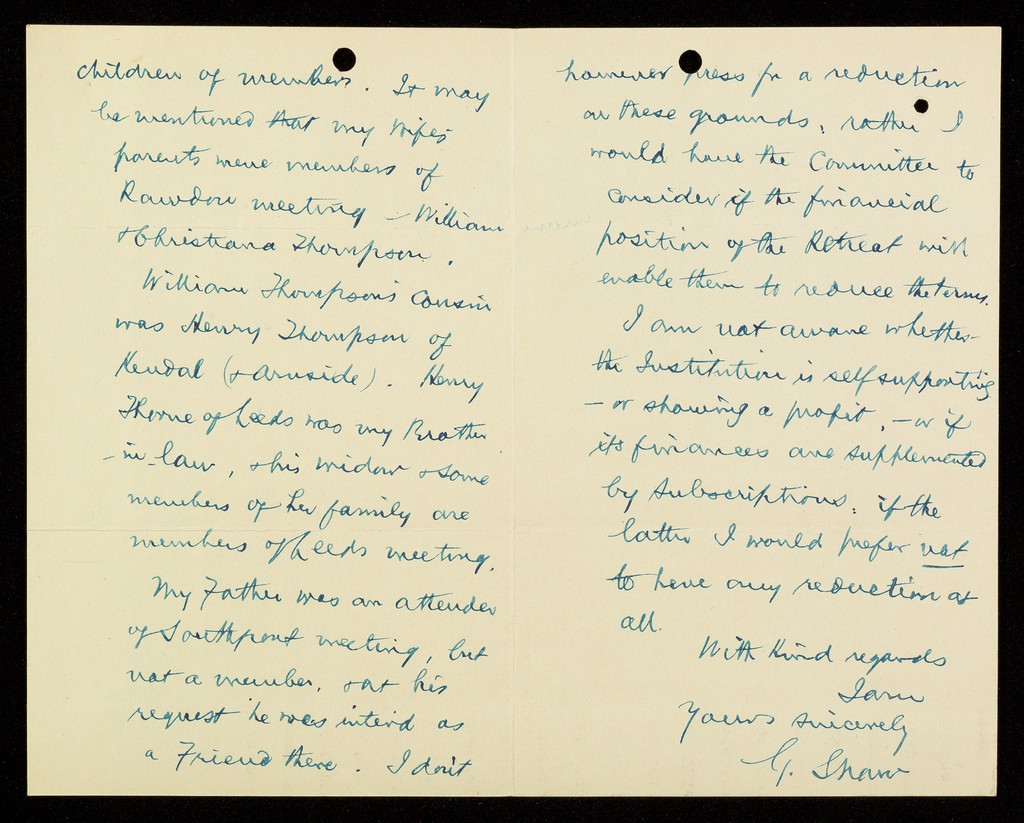 children of members. It may
be mentioned that my wife's
parents were members of
Rawdon meeting - William
& Christiana Thompson.
William Thompson's Cousin
was Henry Thompson of
Kendal (& Arnside). Henry
Thorne of Leeds was my Brother
-in-law, & his widow & some
members of her family are
members of Leeds meeting.
My Father was an attender
of Southport meeting, but
not a member, & at his
request he was interd as
a Friend there. I don't
however press for a reduction
on these grounds, rather I
would have the Committee to
consider if the financial
position of the Retreat will
enable them to reduce the terms.
I am not aware whether
the Institution is self supporting
- or showing a profit, - or if
its finances are supplemented
by subscriptions, if the
latter I would prefer not
to have any reduction at
all.
With kind regards
I am
Yours sincerely
G. Shaw